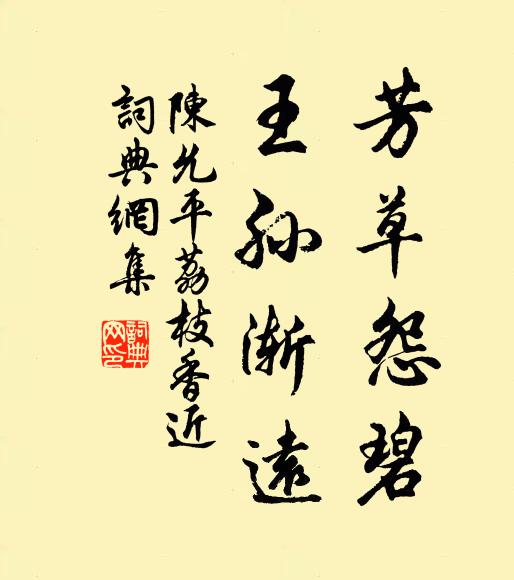 芳草怨碧
王孙渐遠
陳允平荔枝香近
詞典網集
詞典
网印